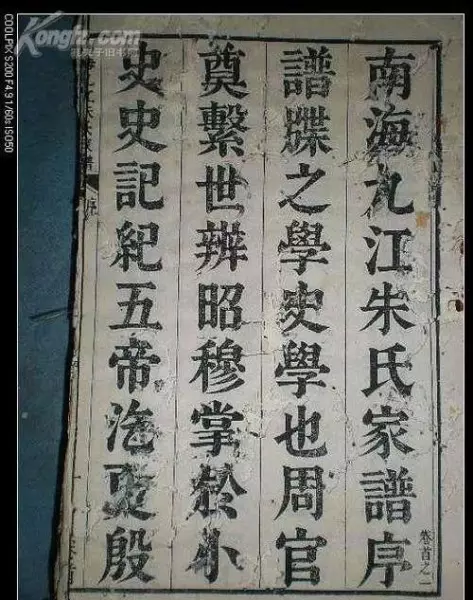 南海九江朱氏家譜序
譜牒之學史學也周官
奠繫世辨昭穆掌於小
史史記紀五帝迄夏殷
卷首之一
九江朱氏家譜
序
Kongfz.com
孔夫子旧书网
COOLPIX S200 F4.9 1/60s ISO50